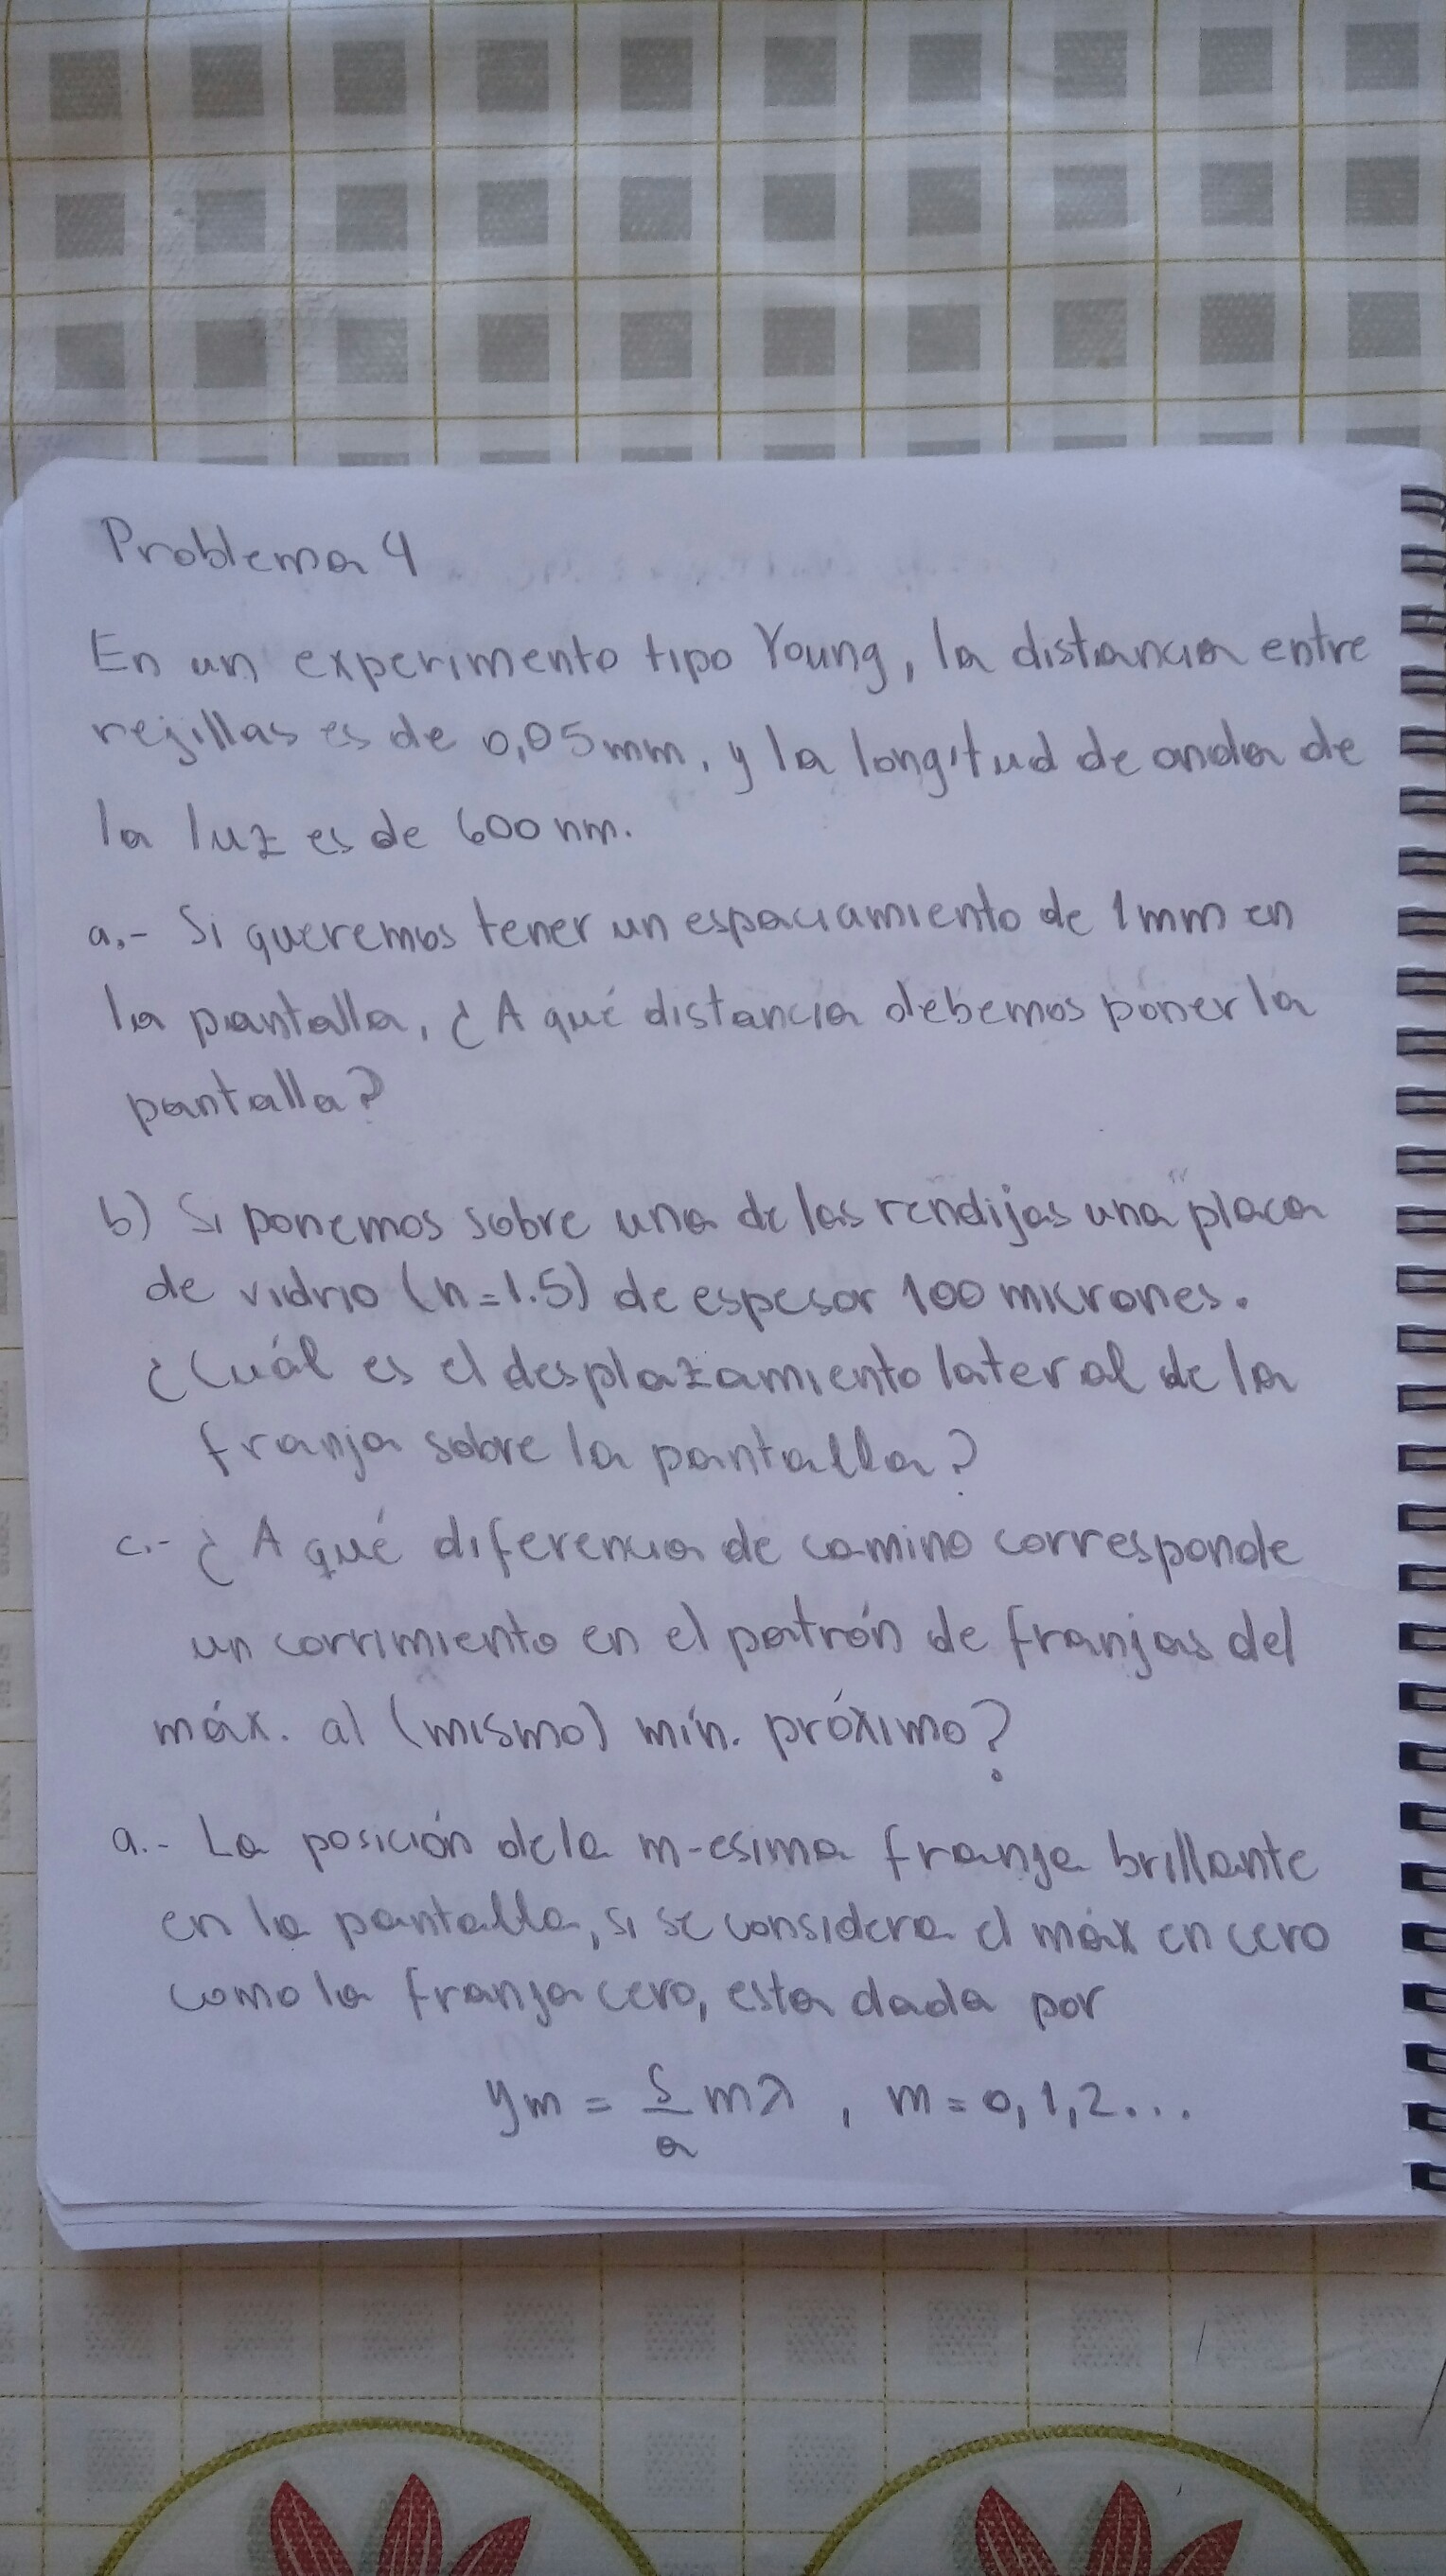 Problema 4
En un experimento tipo Young, la distancia entre
rejillas es de 0,05mm, y la longitud de onda de
la luz es de 600 nm.
a.- Si queremos tener un espaciamiento de 1mm en
la pantalla, ¿A qué distancia debemos poner la
pantalla?
b) Si ponemos sobre una de las rendijas una placa
de vidrio (n=1.5) de espesor 100 micrones.
¿Cuál es el desplazamiento lateral de la
franja sobre la pantalla?
c.- ¿A qué diferencia de camino corresponde
un corrimiento en el patrón de franjas del
máx. al (mismo) mín. próximo?
a.- La posición de la m-esima franja brillante
en la pantalla, si se considera el máx en cero
como la franja cero, esta dada por
ym = s/a mλ , m = 0, 1, 2...